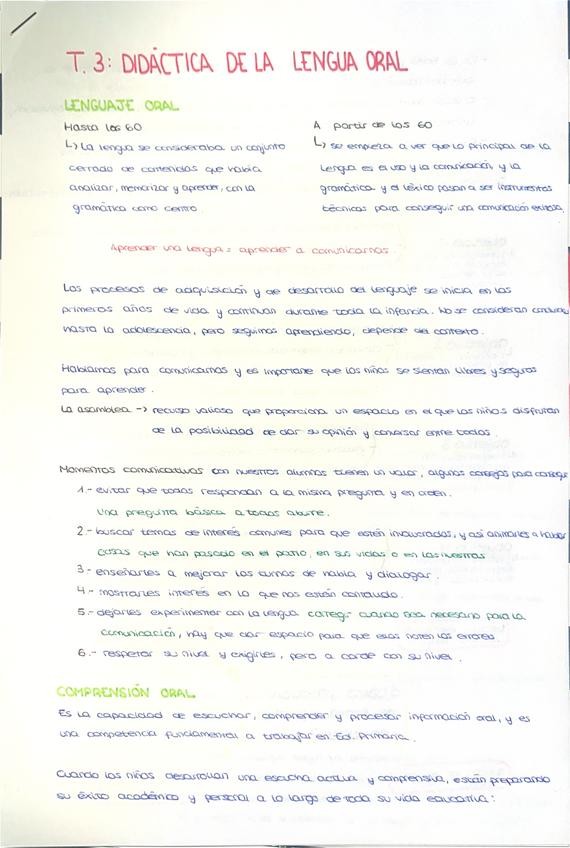 T. 3: DIDÁCTICA DE LA LENGUA ORAL
LENGUAJE ORAL
Hasta los 60
↳ La lengua se consideraba un conjunto
cerrado de contenidos que había
analizar, memorizar y aprender, con la
gramática como centro.
A partir de los 60
↳ se empieza a ver que lo principal de la
lengua es el uso y la comunicación, y la
gramática y el léxico pasan a ser instrumentos
técnicos para conseguir una comunicación exitosa.
Aprender una lengua = aprender a comunicarnos.
Los procesos de adquisición y de desarrollo del lenguaje se inicia en los
primeros años de vida y continuan durante toda la infancia. No se consideran
hasta la adolescencia, pero seguimos aprendiendo, depende del contexto.
Hablamos para comunicarnos y es importante que los niños se sientan libres y seguros
para aprender.
La asamblea -> recurso valioso que proporciona un espacio en el que los niños disfrutan
de la posibilidad de dar su opinión y conversar entre todos.
Momentos comunicativos con nuestros alumnos tienen un valor, algunos consejos para
1.- evitar que todos respondan a la misma pregunta y en orden.
una pregunta básica a todos aburre.
2.- buscar temas de interés comunes para que estén involucrados, y así animarles a hablar
cosas que han pasado en el patio, en sus vidas o en las nuestras
3.- enseñarles a mejorar los turnos de habla y dialogar.
4.- mostrarles interés en lo que nos están contando.
5.- dejarles experimentar con la lengua corregir cuando sea necesario para la
comunicación, hay que dar espacio para que ellos noten los errores
6.- respetar su nivel y exigirles, pero a corde con su nivel.
COMPRENSIÓN ORAL
Es la capacidad de escuchar, comprender y procesar información oral, y es
una competencia fundamental a trabajar en Ed. Primaria.
Cuando los niños desarrollan una escucha activa y comprensiva, están preparando
su éxito académico y personal a lo largo de toda su vida educativa: